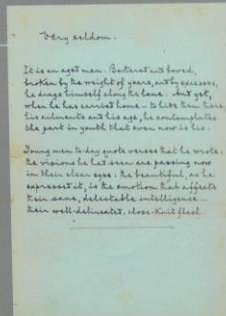 Very seldom.
It is an aged man. Battered and bowed,
broken by the weight of years, and by excesses,
he drags himself along the lane. And yet,
when he has carried home – to hide them there
his ailments and his age, he contemplates
the part in youth that even now is his.
Young men to-day quote verses that he wrote:
the visions he has seen are passing now
in their clear eyes: the beautiful, as he
expressed it, is the emotion that affects
their sane, delectable intelligence –
their well-delineated, close-knit flesh.